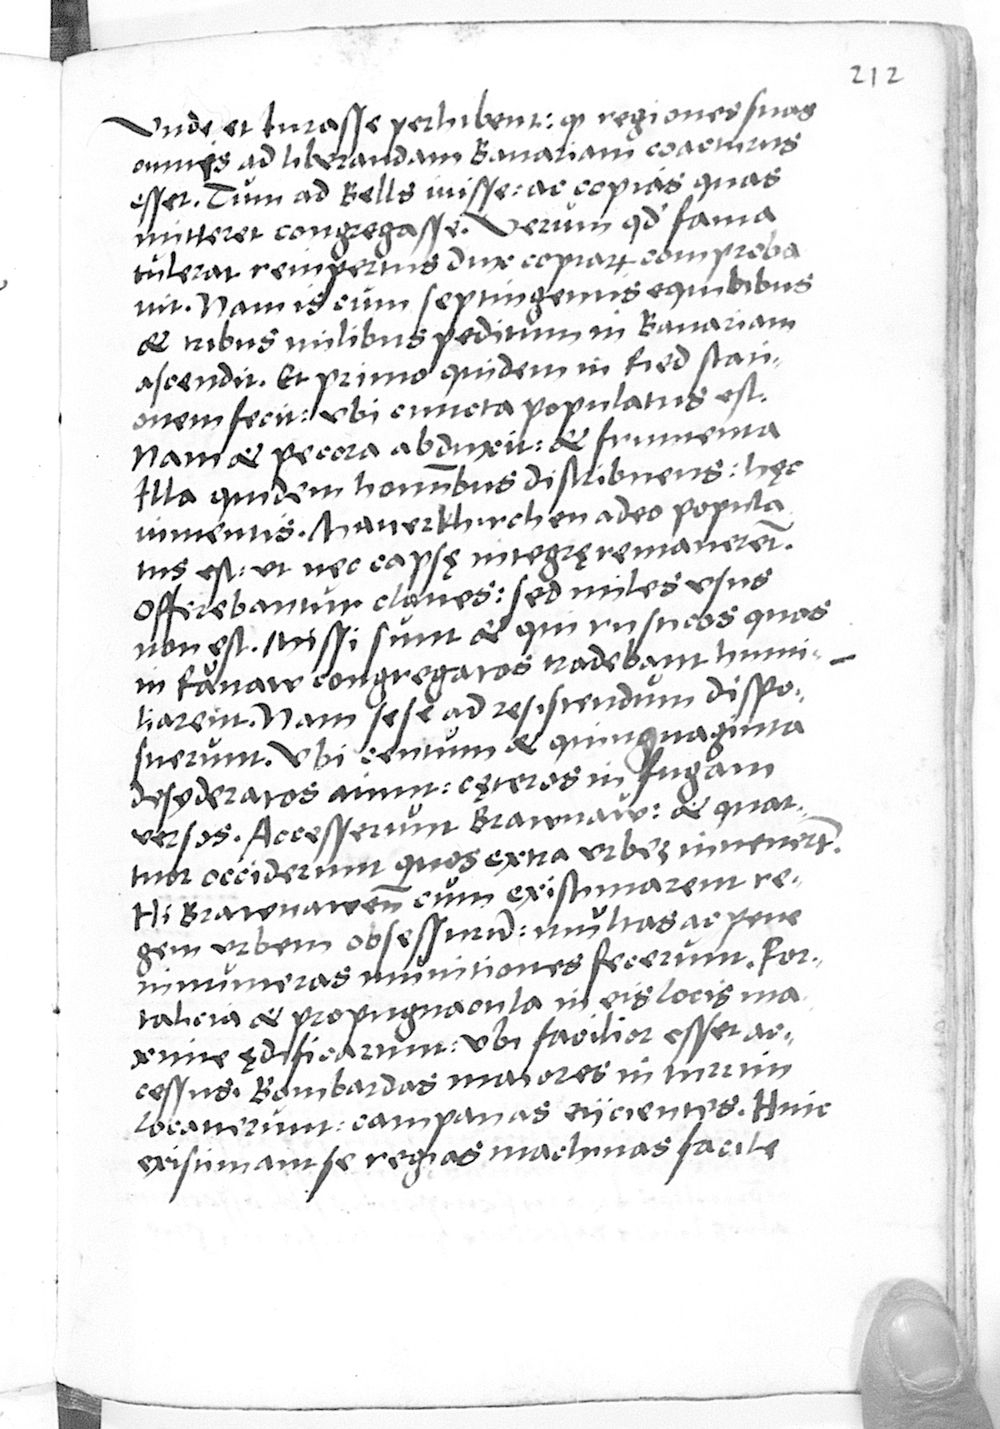 212
Vnde et iurasse perhibent: ꝙ regiones suas
omnes ad liberandam Bauariam coacturus
esset. Tum ad Bells iuisse: ac copias quas
mitteret congregasse. Verum qd' fama
tulerat rempertus dux copiaꝝ comproba
uit. Nam is cum septingentis equitibus
& tribus milibus peditum in Bauariam
ascendit. Et primo quidem in Ried stati-
onem fecit: vbi cuncta populatus est.
Nam & pecora abduxit: & frumenta
Illa quidem hominibus distribuens: hęc
iumentis. Mauerkhirchen adeo popula
tus est: vt nec capsę integrę remanerēt.
Offerebantur claues: sed miles vsus
non est. Missi sunt & qui rusticos quos
in Ranaw congregatos tradebant humi-
liarent. Nam sese ad resistendum dispo-
suerunt. Vbi centum & quinquaginta
desyderatos aiunt: cęteros in fugam
versos. Accesserunt Brawnaw: & quat-
tuor occiderunt quos extra vrbeꝫ inuenerūt.
Hi Brawnaweñ cum existimarent re-
gem vrbem obsessurū: multas ac pene
innumeras munitiones fecerunt. For-
talicia & propugnacula in eis locis ma
xime ędificarunt: vbi facilior esset ac-
cessus. Bombardas maiores in turrim
locauerunt: campanas eijcientes. Hinc
existimant se regias machinas facile